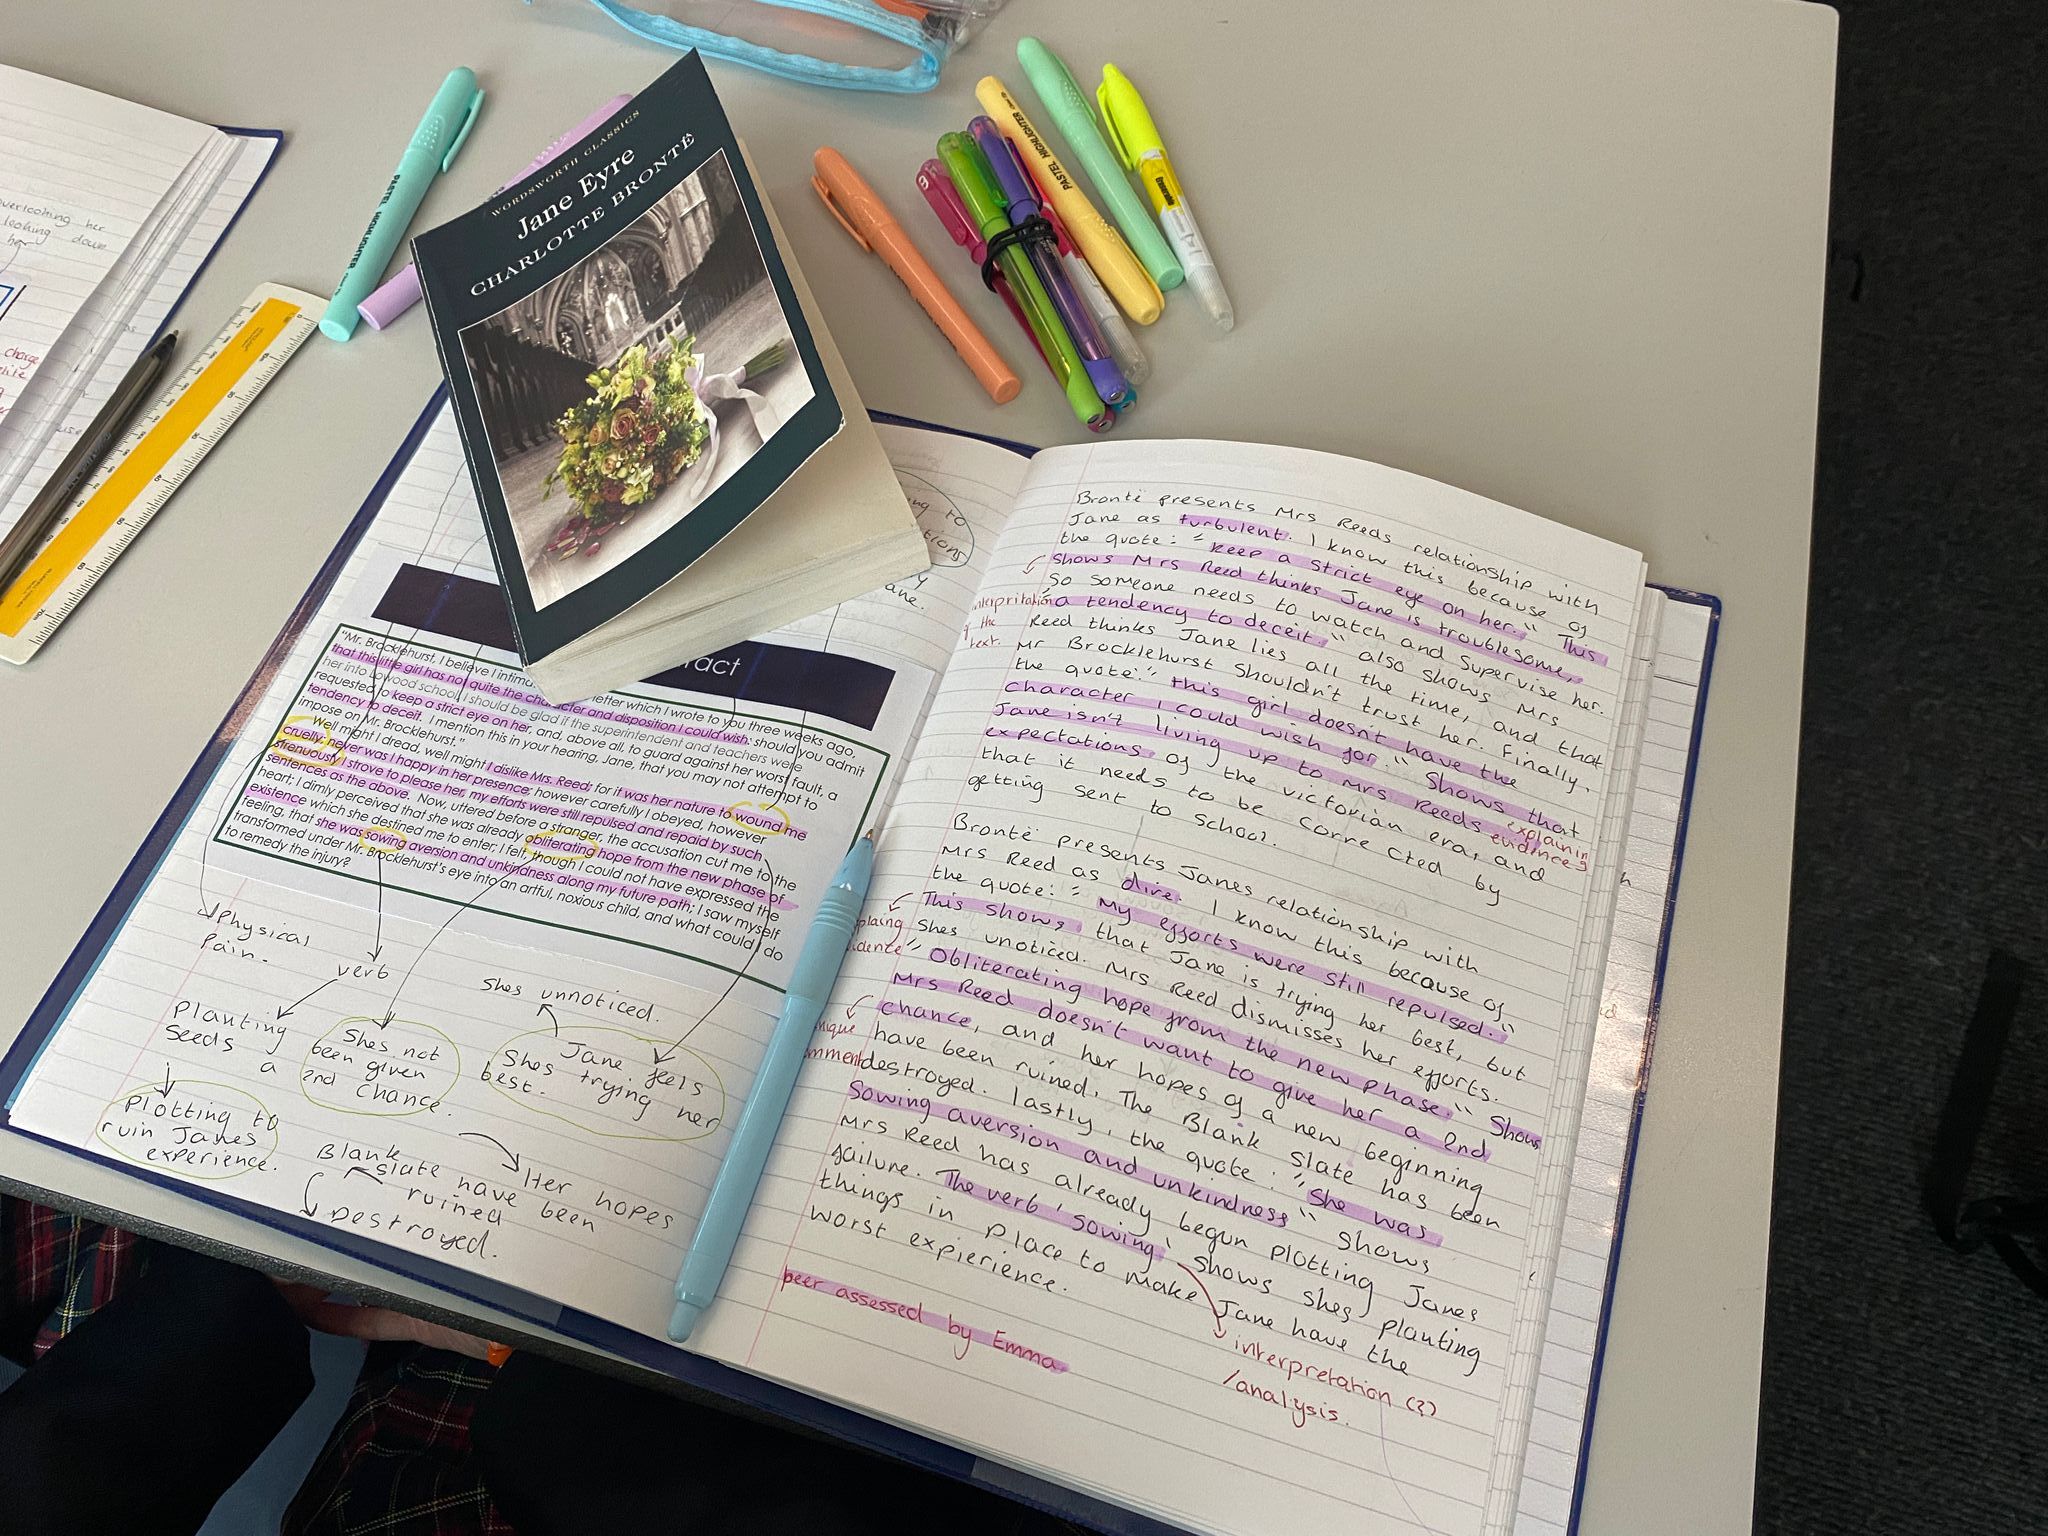 WORDSWORTH CLASSICS
Jane Eyre
CHARLOTTE BRONTË
PASTEL HIGHLIGHTER
PASTEL HIGHLIGHTER
overlooking her
looking down
her
charge
use
"Mr. Brocklehurst, I believe I intima letter which I wrote to you three weeks ago,
that this little girl has not quite the character and disposition I could wish: should you admit
her into Lowood school, I should be glad if the superintendent and teachers were
requested to keep a strict eye on her, and, above all, to guard against her worst fault, a
tendency to deceit. I mention this in your hearing, Jane, that you may not attempt to
impose on Mr. Brocklehurst."
Well might I dread, well might I dislike Mrs. Reed; for it was her nature to wound me
cruelly; never was I happy in her presence; however carefully I obeyed, however
strenuously I strove to please her, my efforts were still repulsed and repaid by such
sentences as the above. Now, uttered before a stranger, the accusation cut me to the
heart; I dimly perceived that she was already obliterating hope from the new phase of
existence which she destined me to enter; I felt, though I could not have expressed the
feeling, that she was sowing aversion and unkindness along my future path; I saw myself
transformed under Mr. Brocklehurst's eye into an artful, noxious child, and what could I do
to remedy the injury?
Physical
Pain.
verb
Planting
seeds a
Plotting to
ruin Janes
experience.
Shes not
been given
2nd Chance.
Shes unnoticed.
Jane feels
Shes trying her
best.
Her hopes
have been
ruined
Blank
slate
Destroyed.
Brontë presents Mrs Reeds relationship with
Jane as turbulent. I know this because of
the quote: "keep a strict eye on her." This
shows Mrs Reed thinks Jane is troublesome,
So someone needs to watch and supervise her.
"a tendency to deceit." also shows Mrs
Reed thinks Jane lies all the time, and that
Mr Brocklehurst shouldn't trust her. Finally,
the quote: "this girl doesn't have the
character I could wish for." Shows that
Jane isn't living up to Mrs Reeds
expectations of the victorian era, and
that it needs to be corrected by
getting sent to school.
interpritation
of the
text.
explaining
evidence
Brontë presents Janes relationship with
Mrs Reed as dire. I know this because of
the quote: "My efforts were still repulsed."
This shows, that Jane is trying her best, but
Shes unoticed. Mrs Reed dismisses her efforts.
"Obliterating hope from the new phase." Shows
Mrs Reed doesn't want to give her a 2nd
chance, and her hopes of a new beginning
have been ruined. The Blank slate has been
destroyed. lastly, the quote: "She was
Sowing aversion and unkindness" shows
Mrs Reed has already begun plotting Janes
failure. The verb 'sowing' shows shes planting
things in place to make Jane have the
worst expierience.
interpretation (?)
/analysis.
peer assessed by Emma